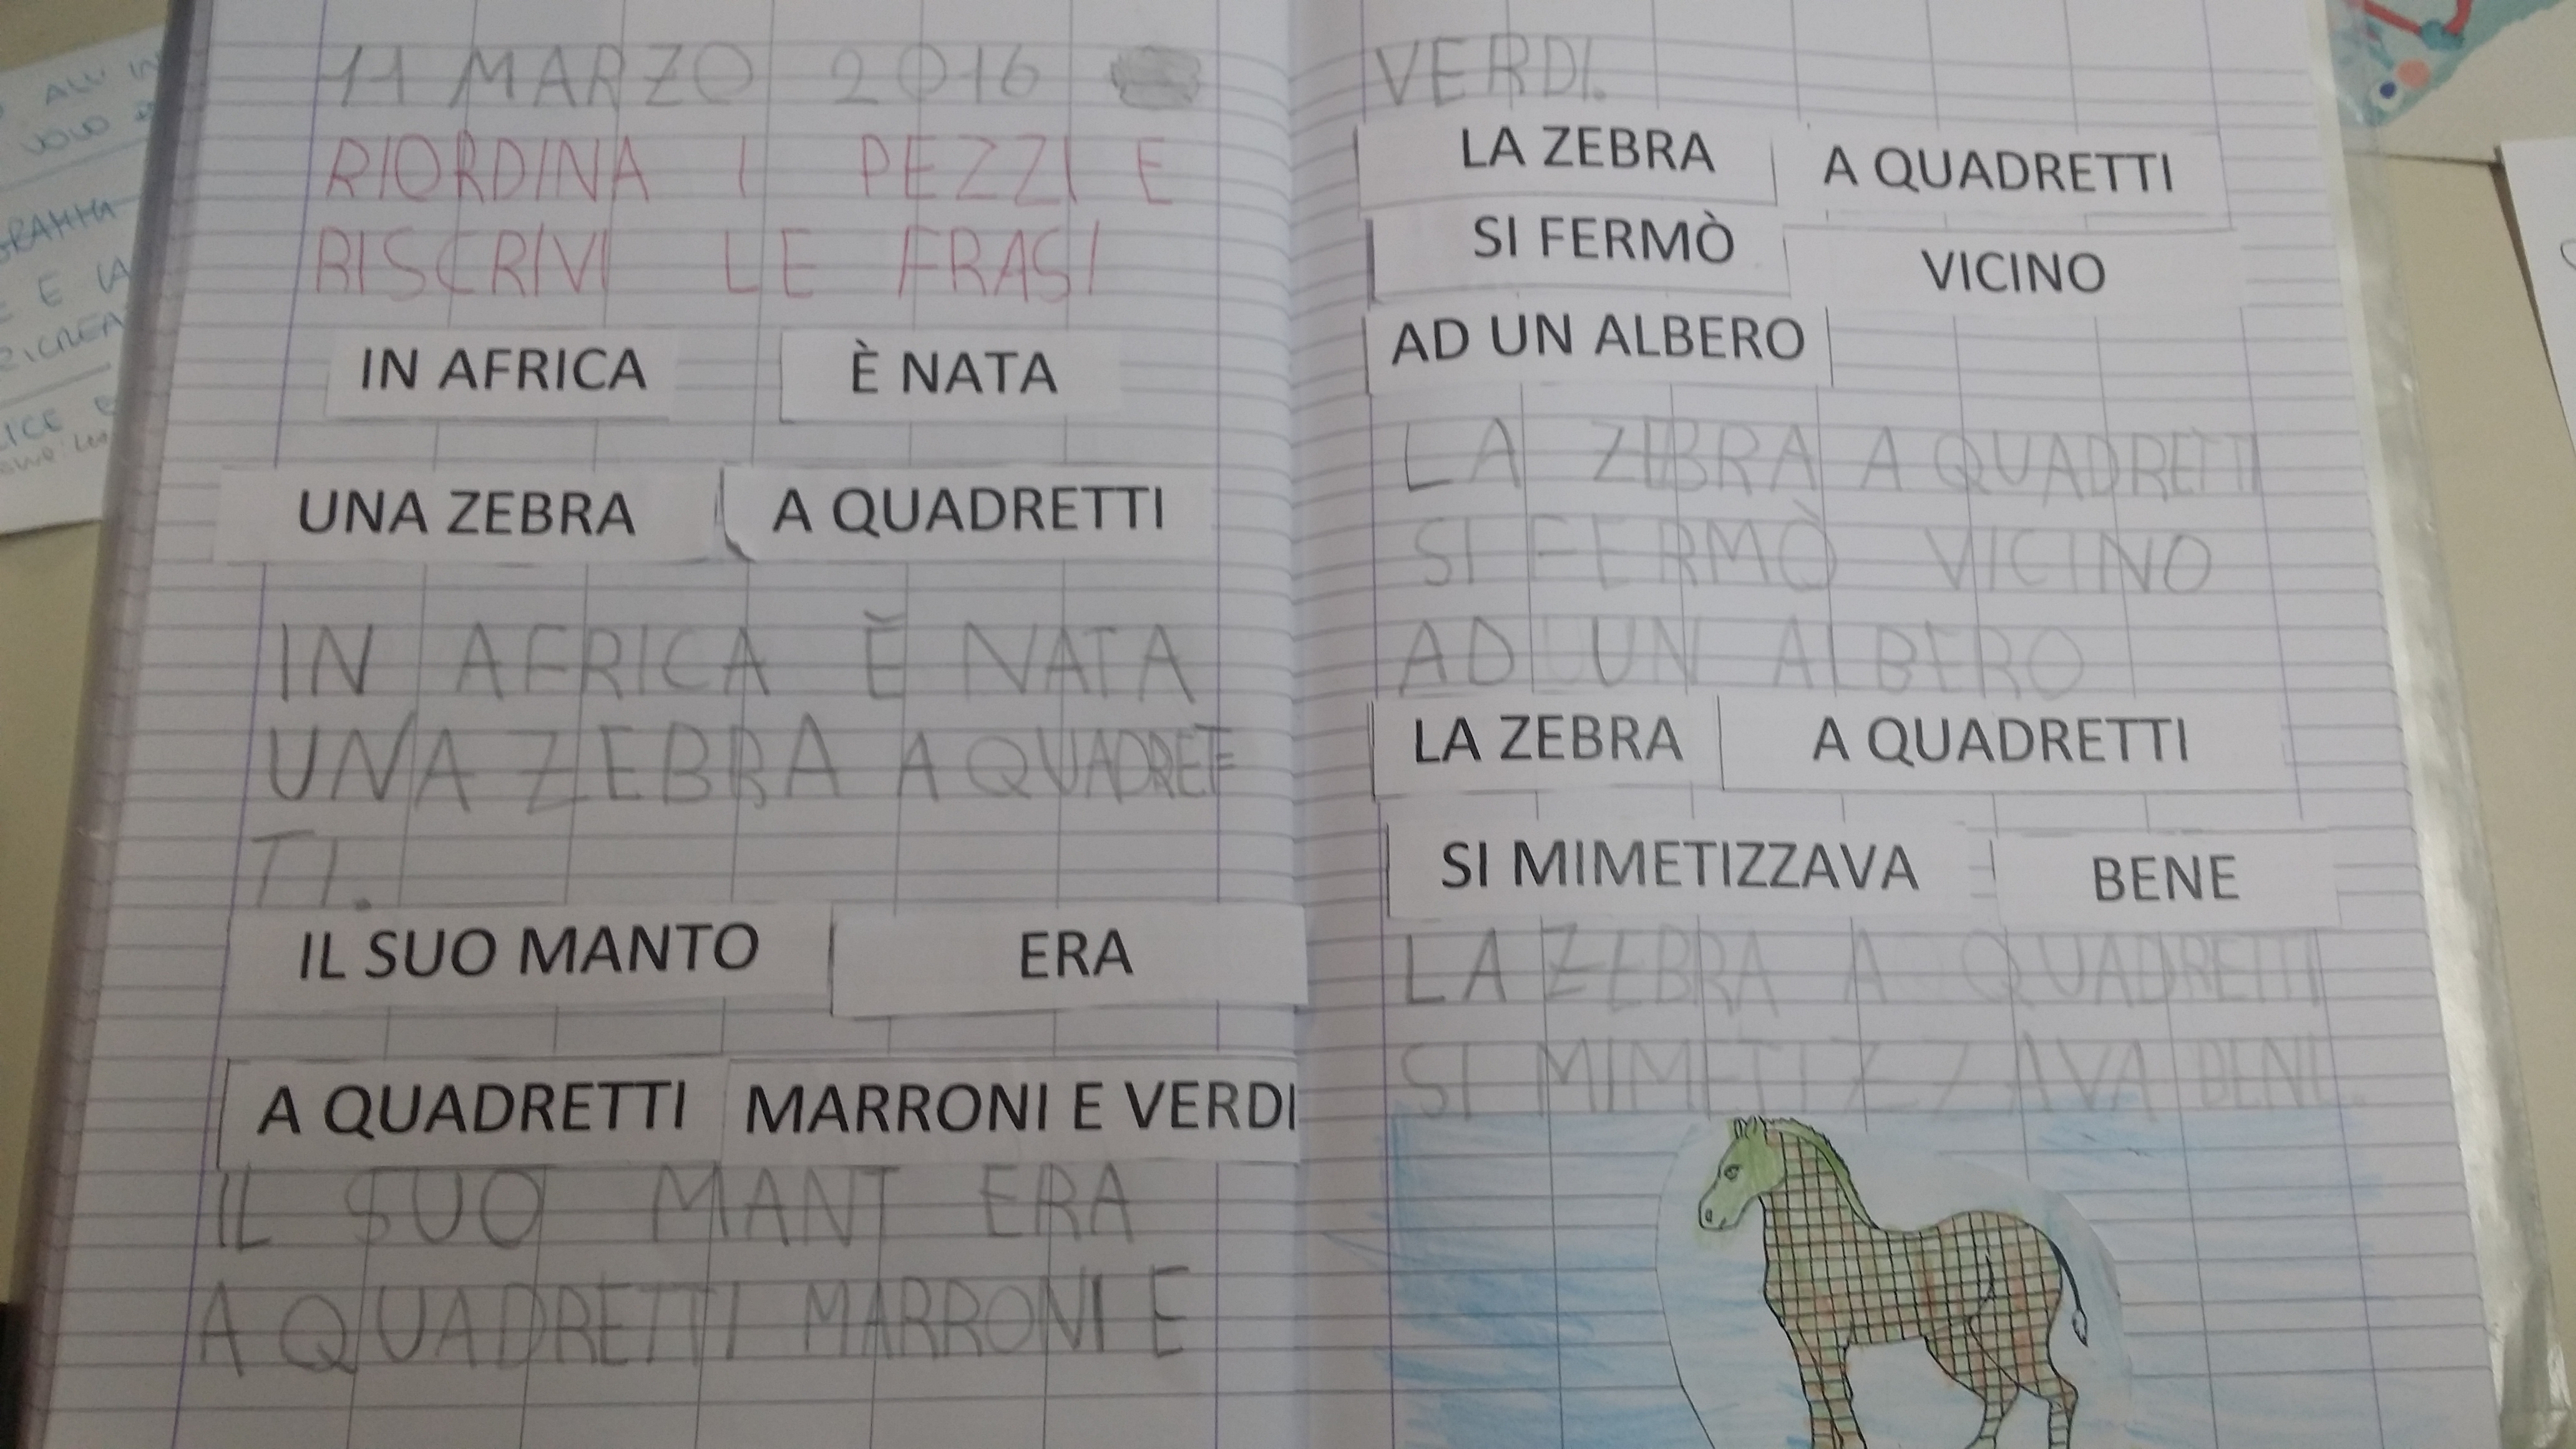 11 MARZO 2016
RIORDINA I PEZZI E
RISCRIVI LE FRASI
IN AFRICA È NATA
UNA ZEBRA A QUADRETTI
IN AFRICA È NATA
UNA ZEBRA A QUADRET
TI.
IL SUO MANTO ERA
A QUADRETTI MARRONI E VERDI
IL SUO MANT ERA
A QUADRETTI MARRONI E
VERDI.
LA ZEBRA A QUADRETTI
SI FERMÒ VICINO
AD UN ALBERO
LA ZEBRA A QUADRETTI
SI FERMÒ VICINO
AD UN ALBERO
LA ZEBRA A QUADRETTI
SI MIMETIZZAVA BENE
LA ZEBRA A QUADRETTI
SI MIMETIZZAVA BENE.
ALL' IN
VOLO
E LA